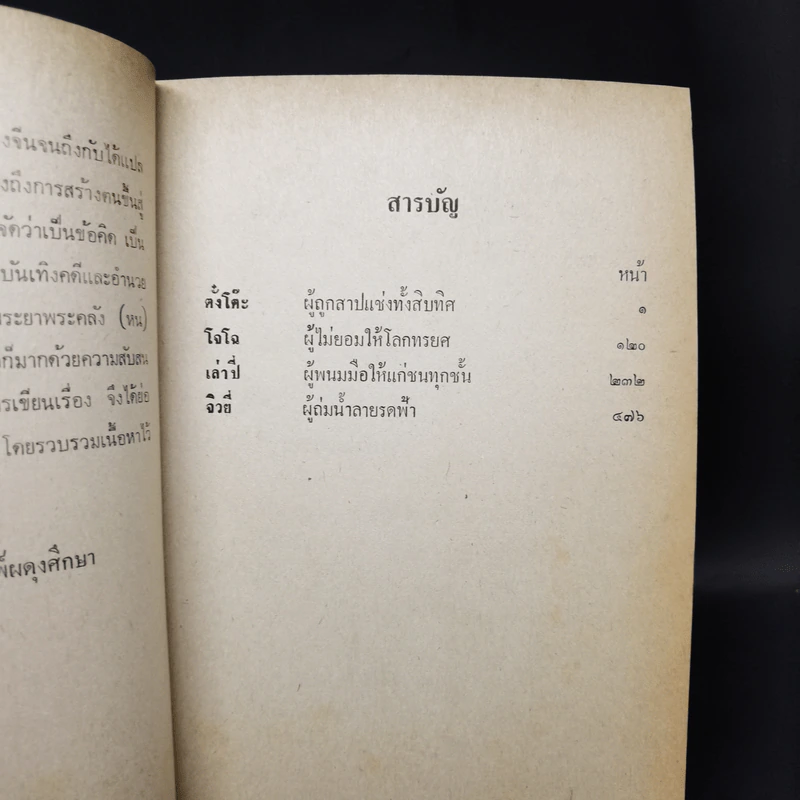 งจีนจนถึงกับได้แปล
งถึงการสร้างตนขึ้นสู่
จัดว่าเป็นข้อคิด เป็น
บันเทิงคดีและอำนวย
ระยาพระคลัง (หน)
ก็มากด้วยความสับสน
รเขียนเรื่อง จึงได้ย่อ
โดยรวบรวมเนื้อหาไว้
ผดุงศึกษา
สารบัญ
หน้า
ตั๋งโต๊ะ ผู้ถูกสาปแช่งทั้งสิบทิศ ๑
โจโฉ ผู้ไม่ยอมให้โลกทรยศ ๑๒๐
เล่าปี่ ผู้พนมมือให้แก่ชนทุกชั้น ๒๓๒
จิวยี่ ผู้ถ่มน้ำลายรดฟ้า ๔๗๖